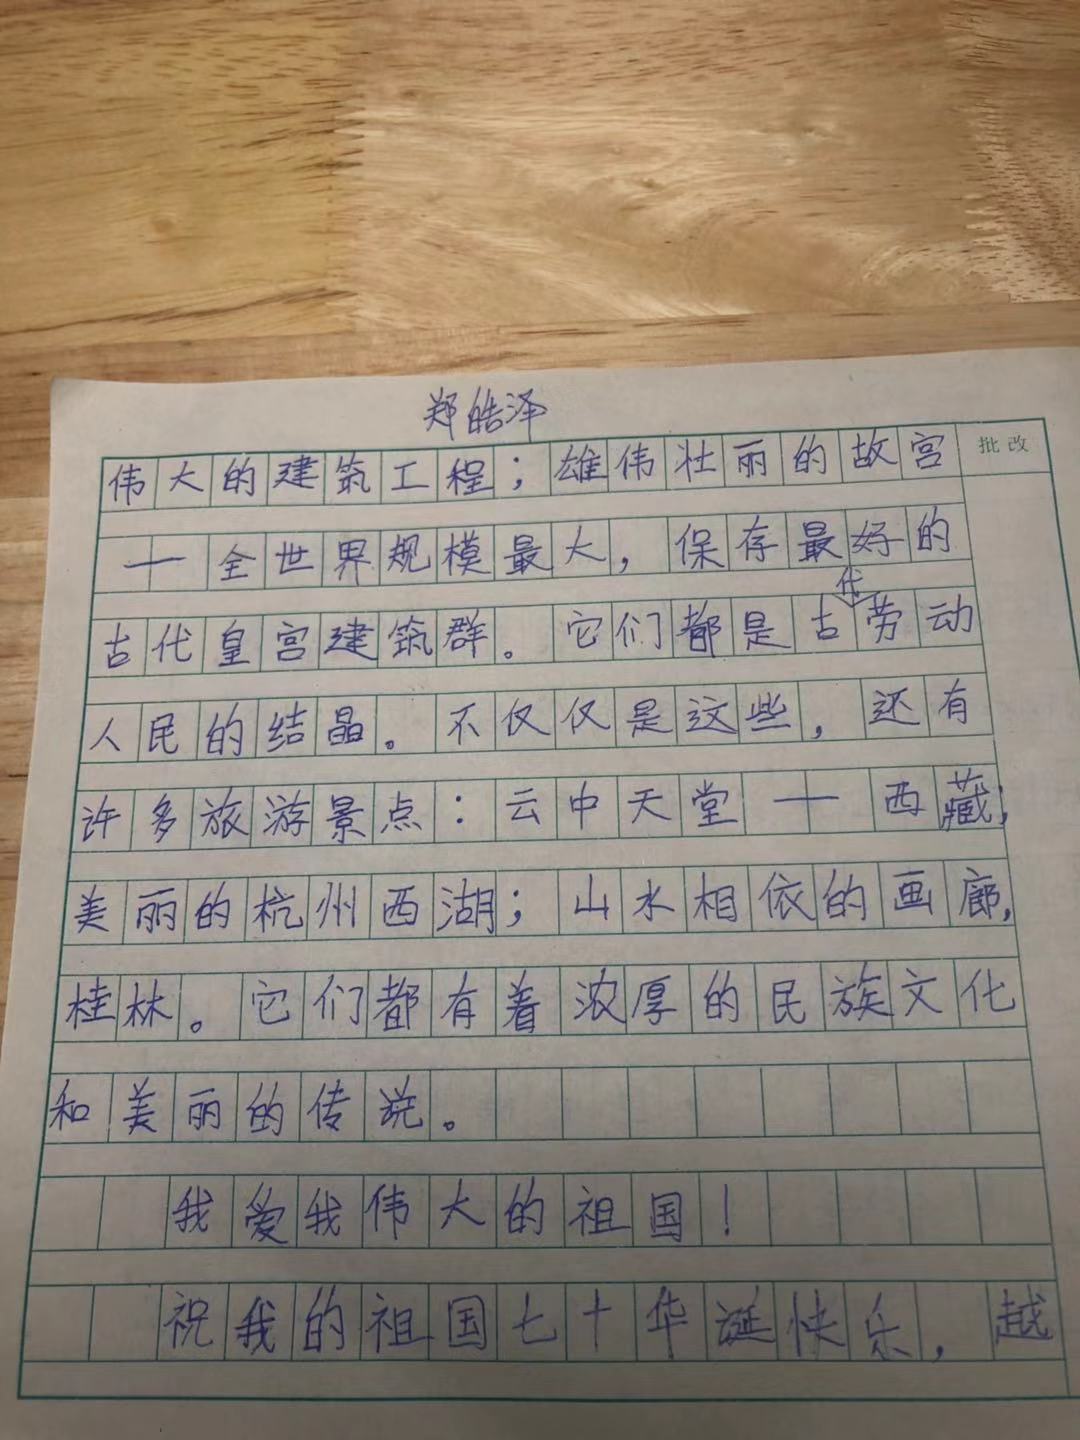 郑皓泽
伟大的建筑工程；雄伟壮丽的故宫
批改
——全世界规模最大，保存最好的
代
古代皇宫建筑群。它们都是古劳动
人民的结晶。不仅仅是这些，还有
许多旅游景点：云中天堂——西藏；
美丽的杭州西湖；山水相依的画廊，
桂林。它们都有着浓厚的民族文化
和美丽的传说。
我爱我伟大的祖国！
祝我的祖国七十华诞快乐，越